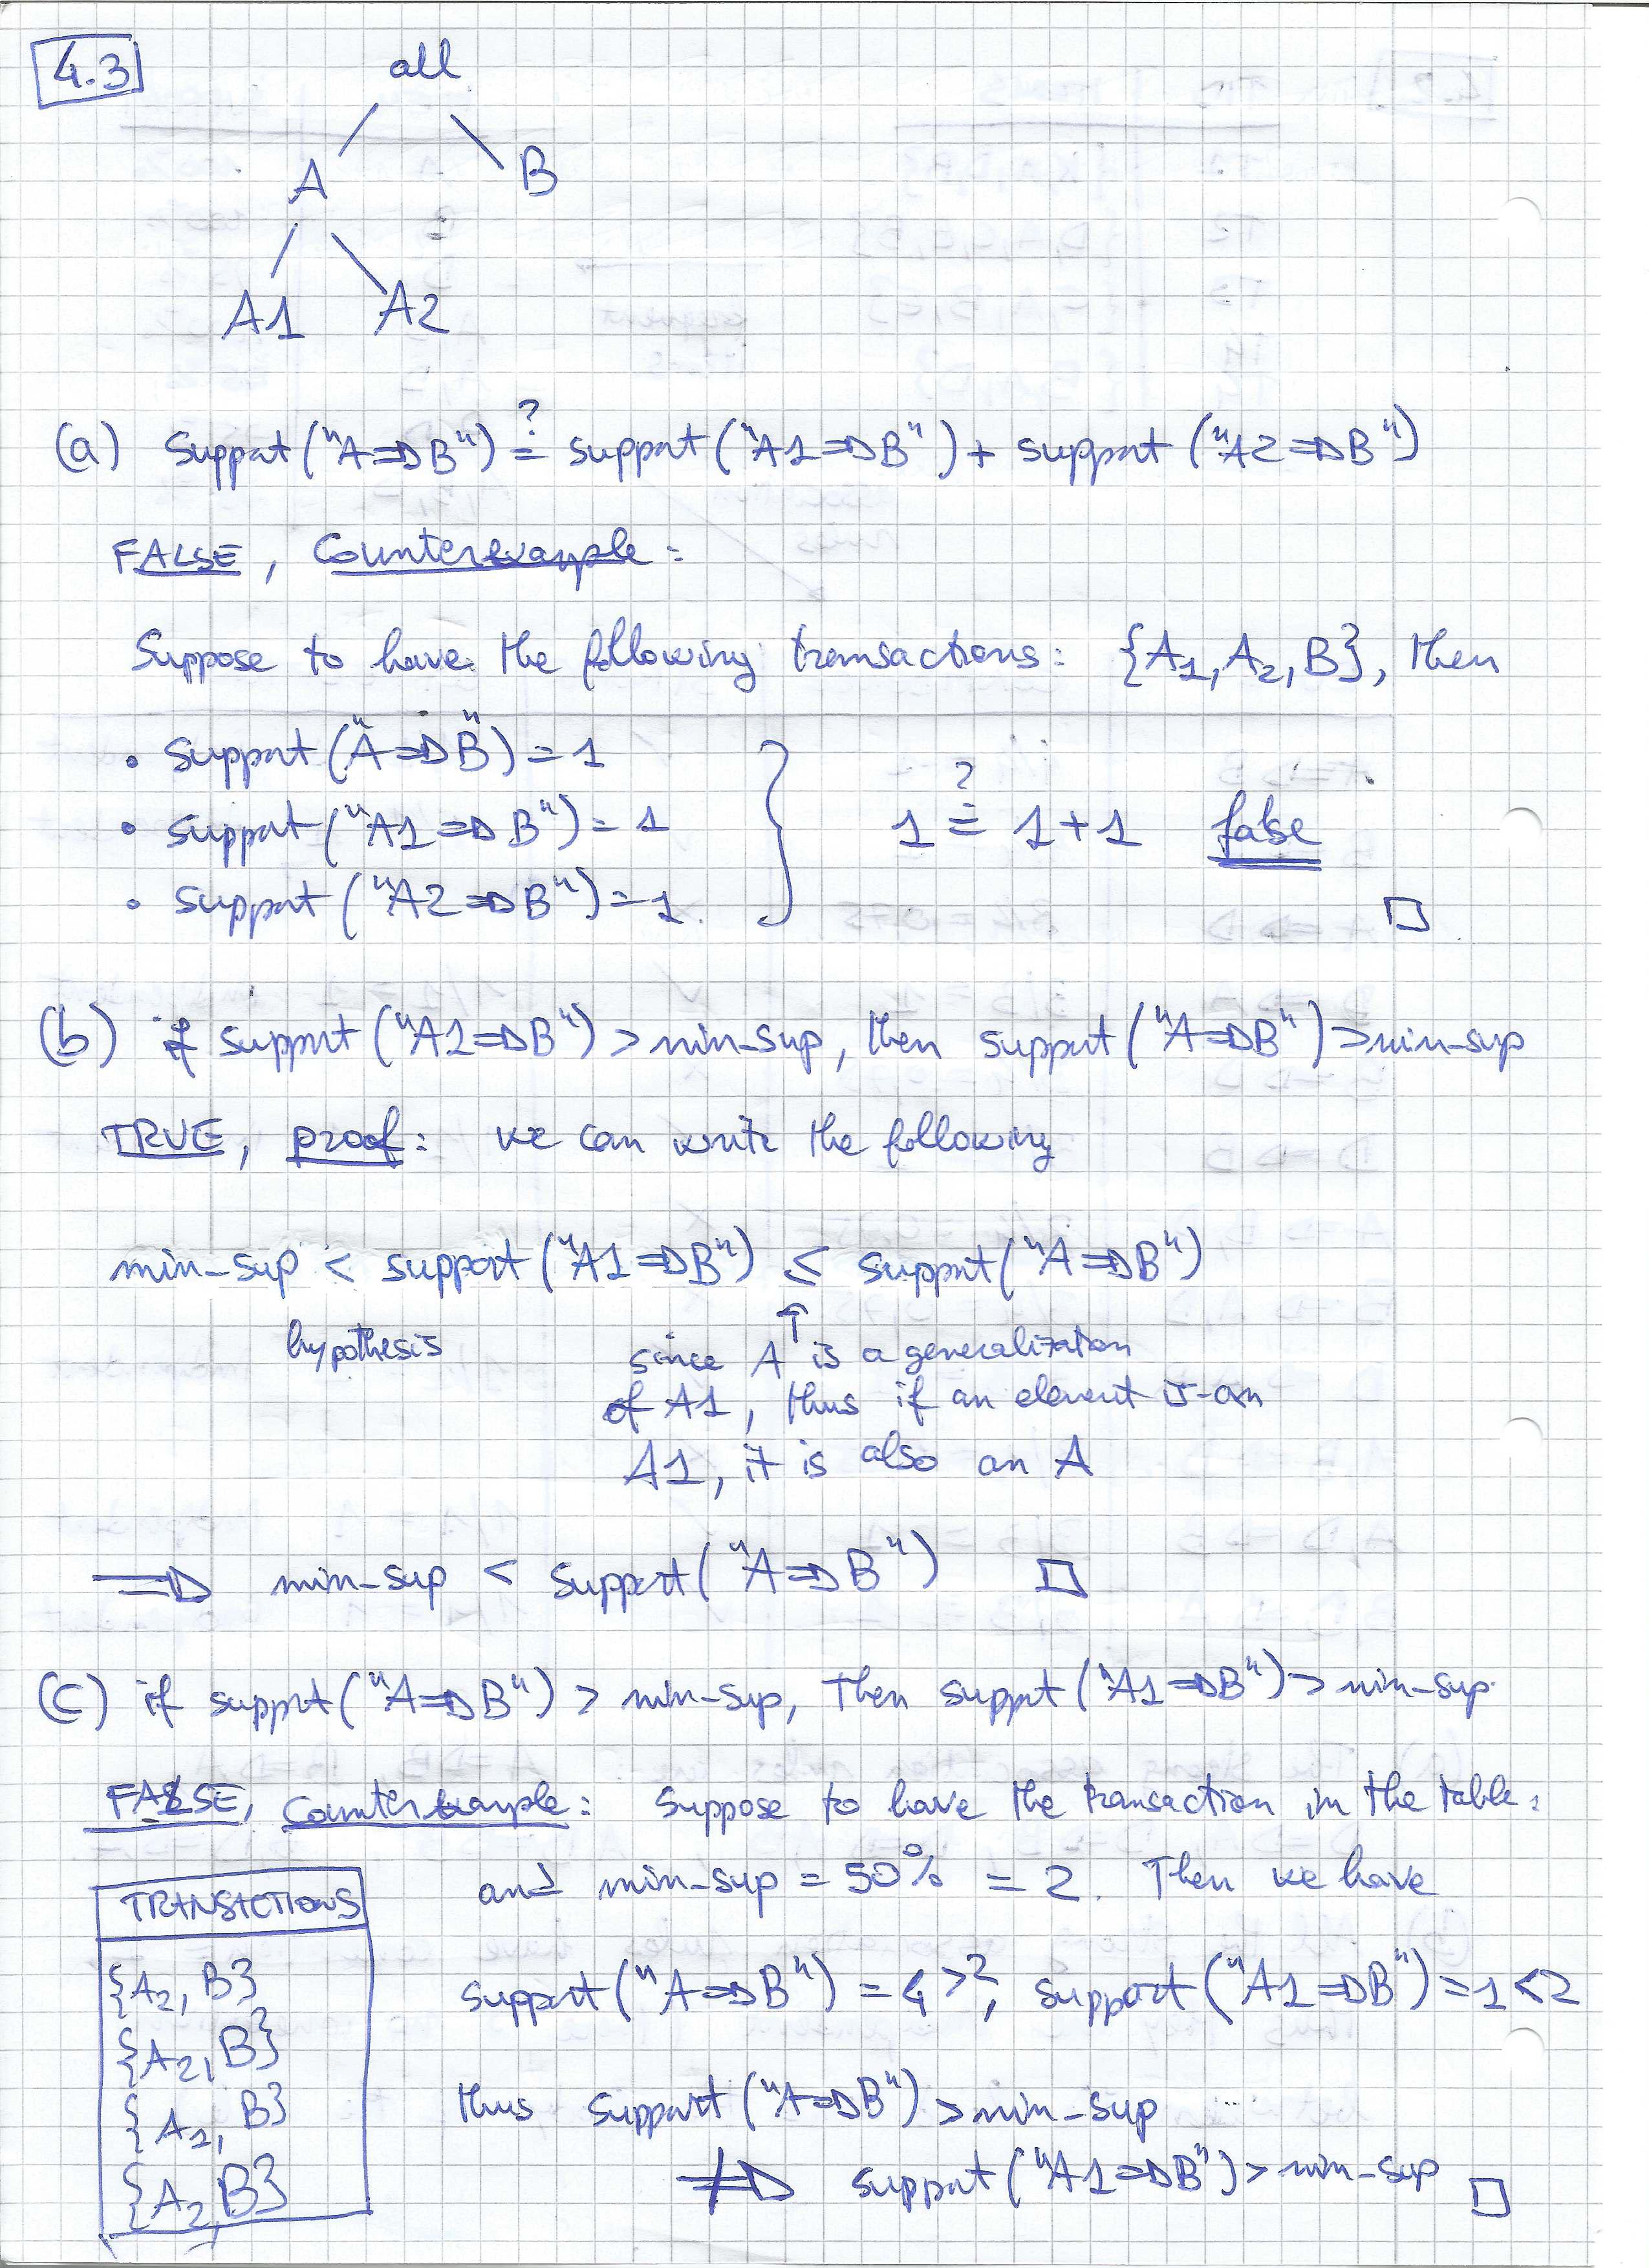 4.3
all
A B
A1 A2
(a) Support("A⇒B") ?= support("A1⇒B") + support("A2⇒B")
FALSE, Counterexample:
Suppose to have the following transactions: {A1, A2, B}, then
• support("A⇒B") = 1
• support("A1⇒B") = 1
• support("A2⇒B") = 1
1 ?= 1+1 false □
(b) if support("A1⇒B") > min-sup, then support("A⇒B") > min-sup
TRUE, proof: we can write the following
min-sup < support("A1⇒B") ≤ support("A⇒B")
hypothesis
↑
since A is a generalization
of A1, thus if an element is-an
A1, it is also an A
⇒ min-sup < support("A⇒B") □
(c) if support("A⇒B") > min-sup, then support("A1⇒B") > min-sup
FALSE, Counterexample: Suppose to have the transaction in the table:
and min-sup = 50% = 2. Then we have
TRANSACTIONS
{A2, B}
{A2, B}
{A1, B}
{A2, B}
support("A⇒B") = 4 > 2, support("A1⇒B") = 1 < 2
thus support("A⇒B") > min-sup
⇏ support("A1⇒B") > min-sup □